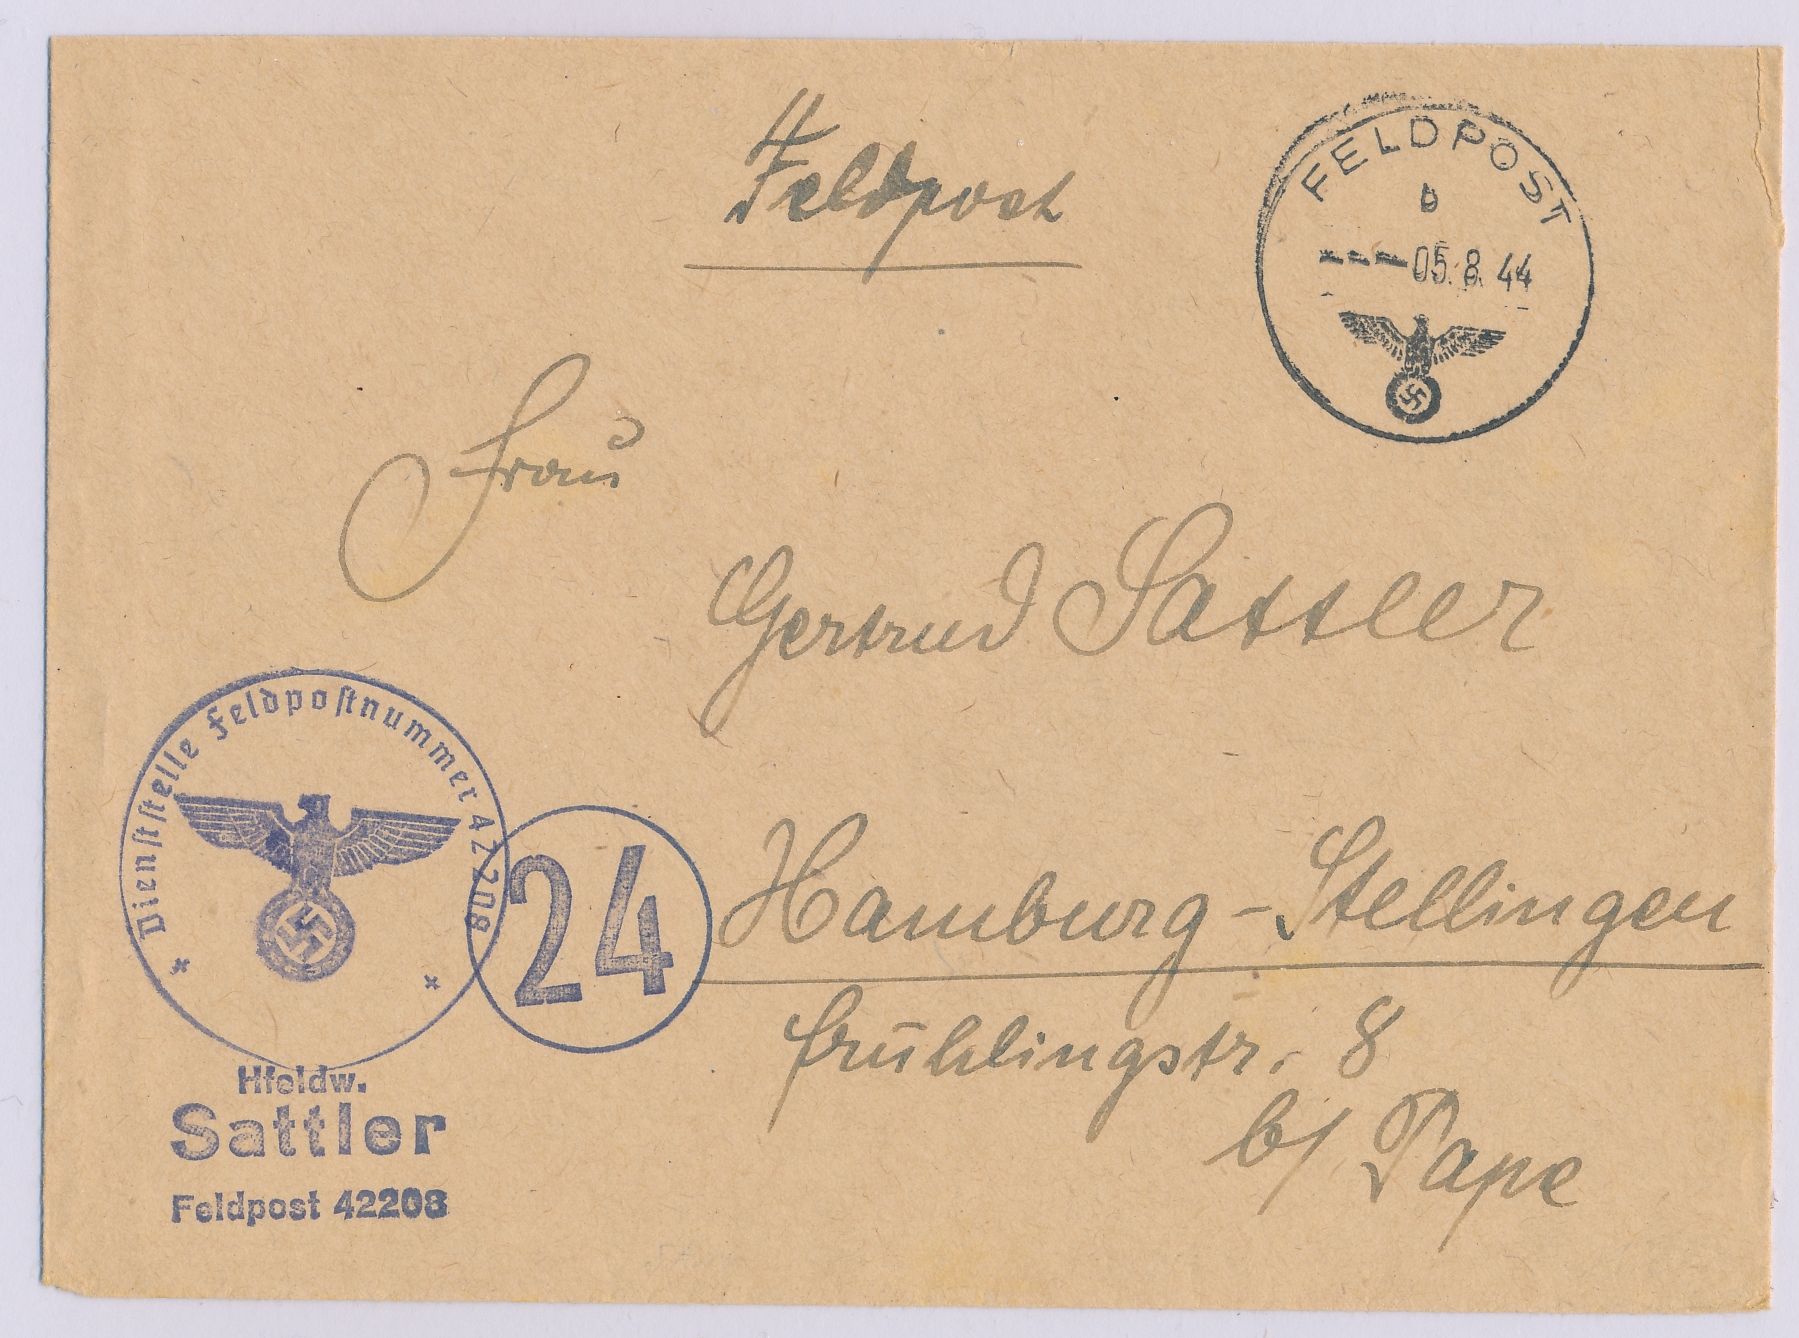 Feldpost
FELDPOST
b
05.8.44
Frau
Gertrud Sattler
Dienststelle Feldpostnummer 42208
24
Hamburg-Stellingen
Frühlingstr. 8
b/ Pape
Hfeldw.
Sattler
Feldpost 42208